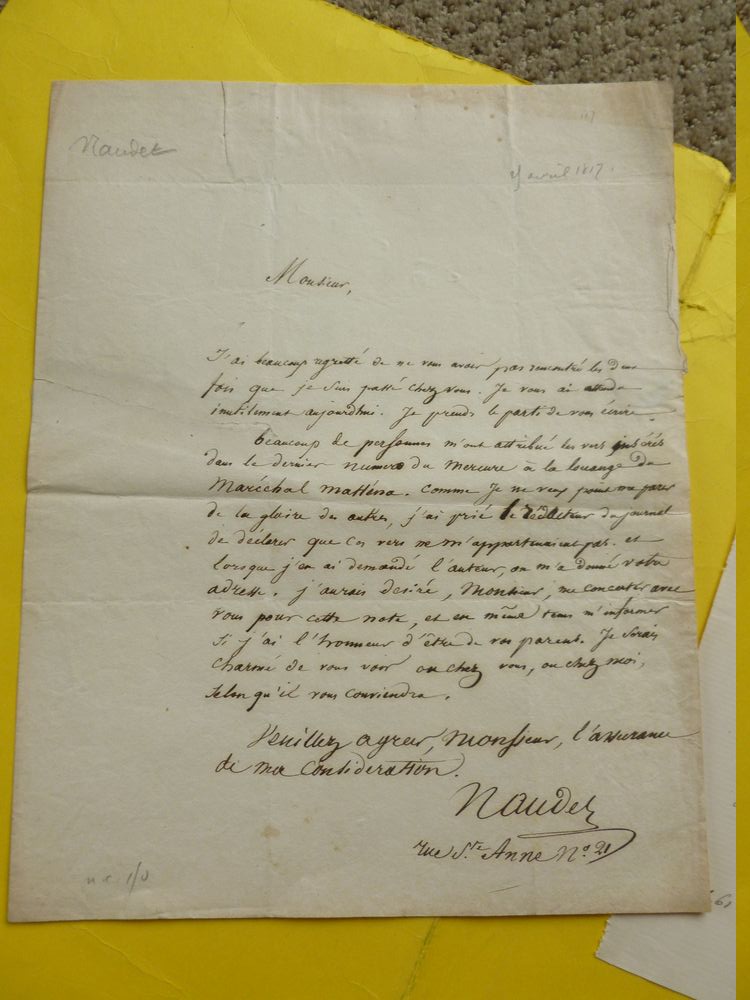 Naudet
avril 1817
Monsieur,
J'ai beaucoup regretté de ne vous avoir pas rencontré les deux
fois que je suis passé chez vous. Je vous ai attendu
inutilement aujourdhui. Je prends le parti de vous écrire.
beaucoup de personnes m'ont attribué les vers insérés
dans le dernier numero du Mercure à la louange du
Maréchal Masséna. Comme Je ne veux point me parer
de la gloire des autres, j'ai prié le rédacteur du journal
de déclarer que ces vers ne m'appartenaient pas. et
lorsque j'en ai demandé l'auteur, on m'a donné votre
adresse. j'aurais desiré, Monsieur, me concerter avec
vous pour cette note, et en même tems m'informer
si j'ai l'honneur d'être de vos parents. Je serais
charmé de vous voir ou chez vous, ou chez moi,
selon qu'il vous conviendra.
Veuillez agréer, Monsieur, l'assurance
de ma consideration.
Naudet
rue Ste Anne No. 21